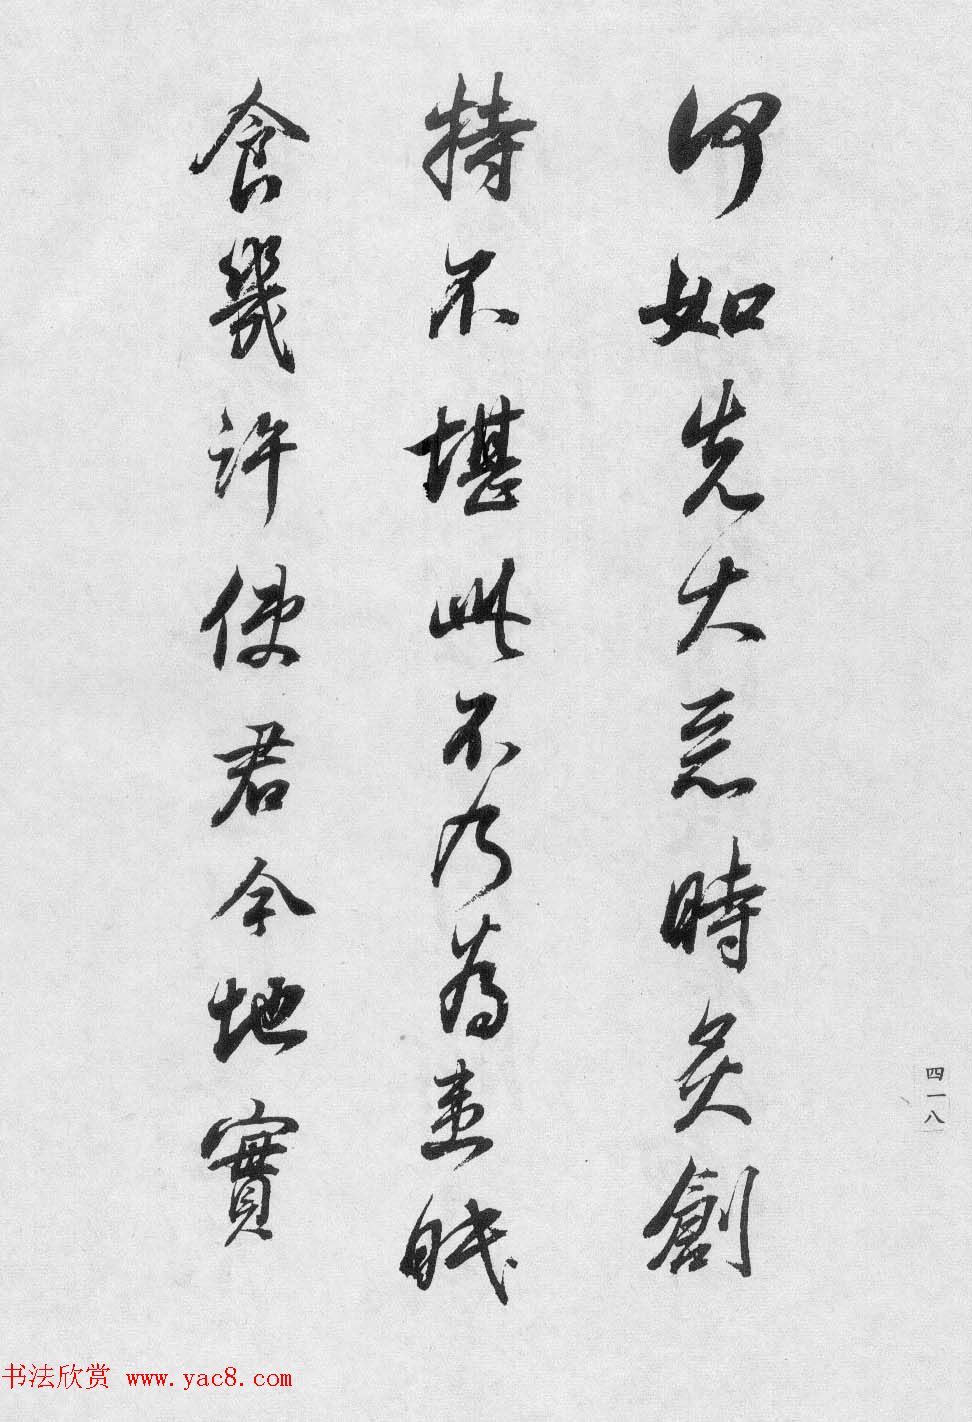 何如先大惡時灸創
特不堪此不乃為
食幾許使君今地實
四一八
书法欣赏 www.yac8.com